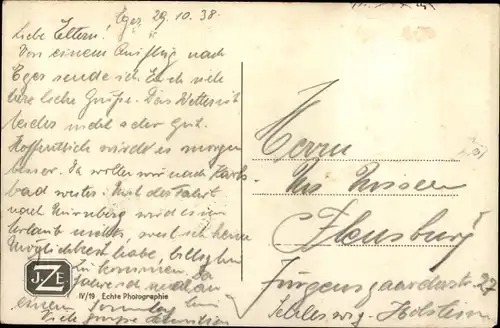 Eger 29.10.38.
Liebe Eltern!
Von einem Ausflug nach
Eger sende ich Euch viele
herzliche Grüße. Das Wetter ist
leider nicht sehr gut.
Hoffentlich wird es morgen
besser. Da wollen wir nach Karls-
bad weiter. Mit der Fahrt
nach Nürnberg wird es im
Urlaub nichts, weil ich keine
Möglichkeit habe, billig hin
zu kommen. Da
an
einem
Viele Grüße
Herrn
Nissen
Flensburg
Jürgensgaarderstr. 27
Schleswig-Holstein
JZE
IV/19 Echte Photographie